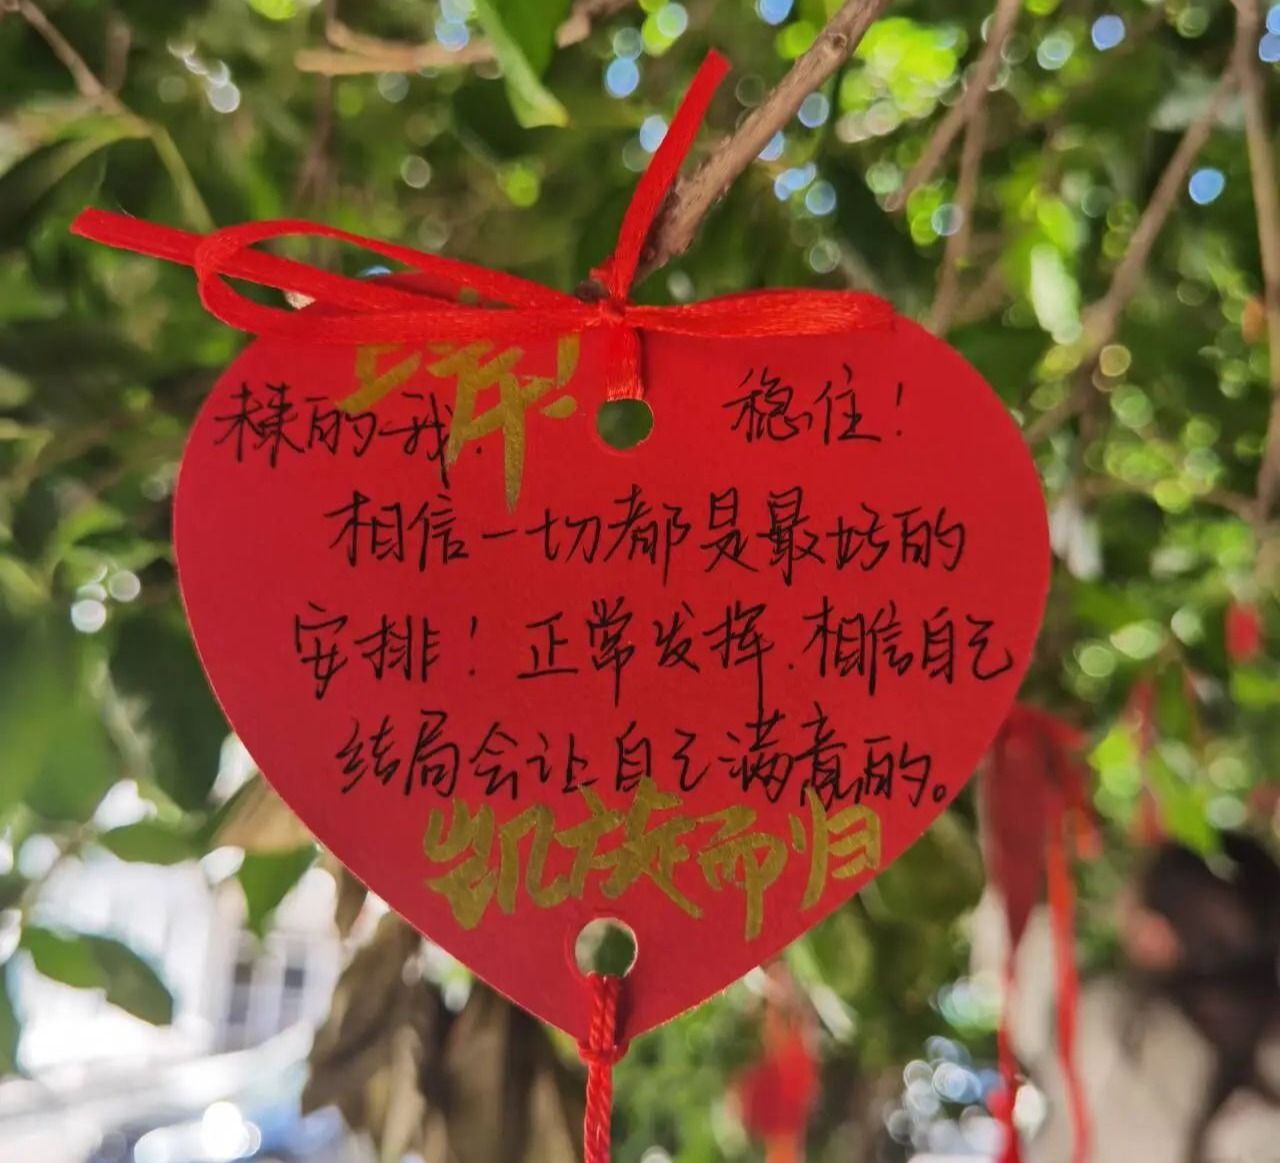 上岸!
未来的我. 稳住!
相信一切都是最好的
安排!正常发挥.相信自己
结局会让自己满意的。
凯旋而归